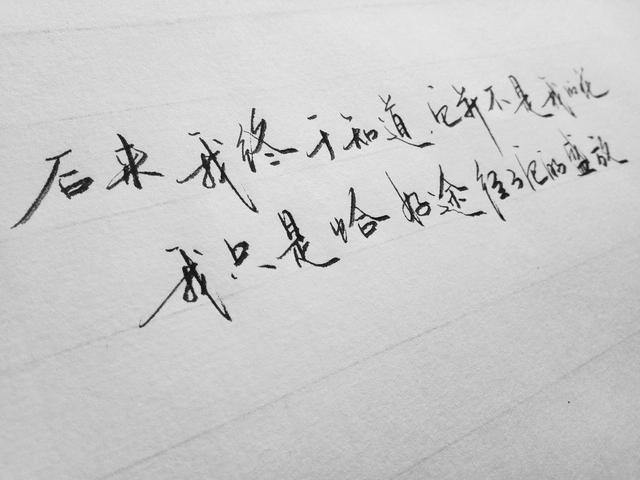 后来我终于知道,它并不是我的花
我只是恰好途经了它的盛放